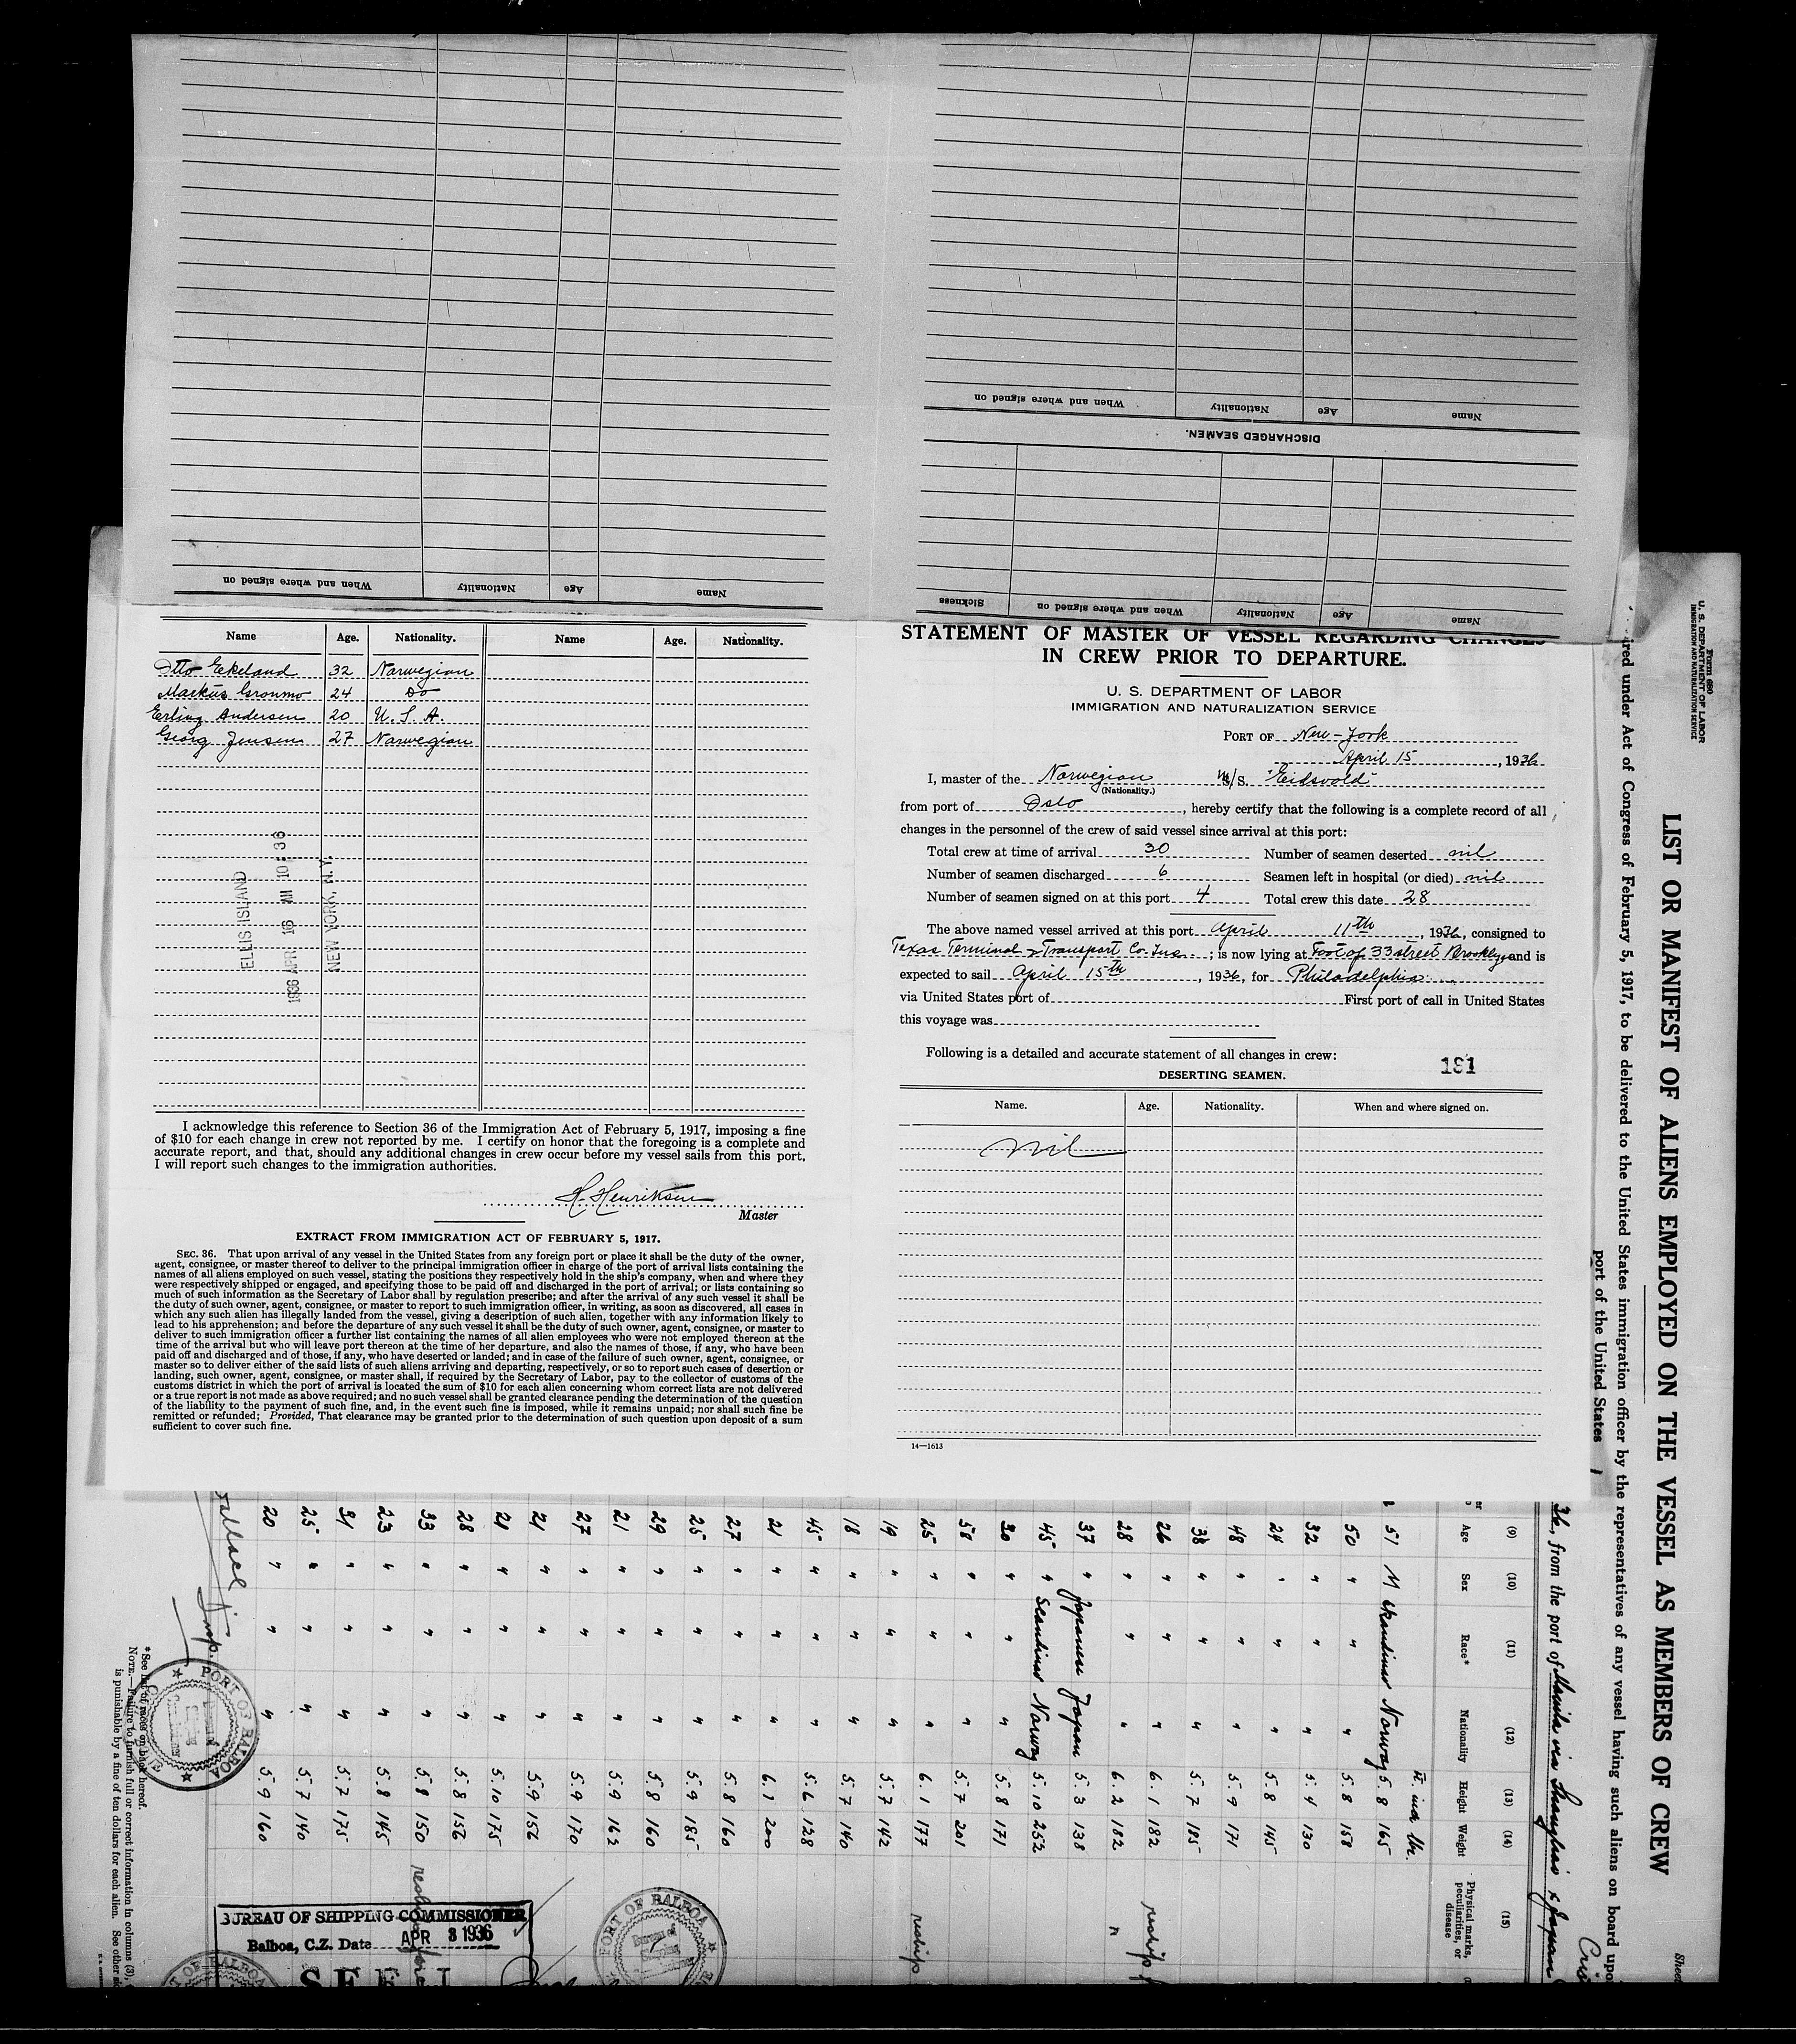 Name Age Nationality When and where signed on
DISCHARGED SEAMEN.
Name Age Nationality When and where signed on Sickness
Name Age Nationality When and where signed on
Name Age. Nationality. Name Age. Nationality.
Otto Eekeland 32 Norwegian
Markus Gronmo 24 Do
Erling Andersen 20 U. S. A.
Georg Jensen 27 Norwegian
ELLIS ISLAND
1936 APR 16 AM 10:36
NEW YORK, N.Y.
I acknowledge this reference to Section 36 of the Immigration Act of February 5, 1917, imposing a fine
of $10 for each change in crew not reported by me. I certify on honor that the foregoing is a complete and
accurate report, and that, should any additional changes in crew occur before my vessel sails from this port,
I will report such changes to the immigration authorities.
H. Henriksen
Master
EXTRACT FROM IMMIGRATION ACT OF FEBRUARY 5, 1917.
SEC. 36. That upon arrival of any vessel in the United States from any foreign port or place it shall be the duty of the owner,
agent, consignee, or master thereof to deliver to the principal immigration officer in charge of the port of arrival lists containing the
names of all aliens employed on such vessel, stating the positions they respectively hold in the ship's company, when and where they
were respectively shipped or engaged, and specifying those to be paid off and discharged in the port of arrival; or lists containing so
much of such information as the Secretary of Labor shall by regulation prescribe; and after the arrival of any such vessel it shall be
the duty of such owner, agent, consignee, or master to report to such immigration officer, in writing, as soon as discovered, all cases in
which any such alien has illegally landed from the vessel, giving a description of such alien, together with any information likely to
lead to his apprehension; and before the departure of any such vessel it shall be the duty of such owner, agent, consignee, or master to
deliver to such immigration officer a further list containing the names of all alien employees who were not employed thereon at the
time of the arrival but who will leave port thereon at the time of her departure, and also the names of those, if any, who have been
paid off and discharged and of those, if any, who have deserted or landed; and in case of the failure of such owner, agent, consignee, or
master so to deliver either of the said lists of such aliens arriving and departing, respectively, or so to report such cases of desertion or
landing, such owner, agent, consignee, or master shall, if required by the Secretary of Labor, pay to the collector of customs of the
customs district in which the port of arrival is located the sum of $10 for each alien concerning whom correct lists are not delivered
or a true report is not made as above required; and no such vessel shall be granted clearance pending the determination of the question
of the liability to the payment of such fine, and, in the event such fine is imposed, while it remains unpaid; nor shall such fine be
remitted or refunded; Provided, That clearance may be granted prior to the determination of such question upon deposit of a sum
sufficient to cover such fine.
STATEMENT OF MASTER OF VESSEL REGARDING CHANGES
IN CREW PRIOR TO DEPARTURE.
U. S. DEPARTMENT OF LABOR
IMMIGRATION AND NATURALIZATION SERVICE
PORT OF New-York
April 15, 1936
I, master of the Norwegian M/S. "Eidsvold"
(Nationality.)
from port of Oslo, hereby certify that the following is a complete record of all
changes in the personnel of the crew of said vessel since arrival at this port:
Total crew at time of arrival 30 Number of seamen deserted nil
Number of seamen discharged 6 Seamen left in hospital (or died) nil
Number of seamen signed on at this port 4 Total crew this date 28
The above named vessel arrived at this port April 11th, 1936, consigned to
Texas Terminal & Transport Co. Inc.; is now lying at Foot of 33 street Brooklyn and is
expected to sail April 15th, 1936, for Philadelphia
via United States port of First port of call in United States
this voyage was
Following is a detailed and accurate statement of all changes in crew:
191
DESERTING SEAMEN.
Name. Age. Nationality. When and where signed on.
nil
14—1613
Form 680
U. S. DEPARTMENT OF LABOR
IMMIGRATION AND NATURALIZATION SERVICE
Shee
LIST OR MANIFEST OF ALIENS EMPLOYED ON THE VESSEL AS MEMBERS OF CREW
ired under Act of Congress of February 5, 1917, to be delivered to the United States immigration officer by the representatives of any vessel having such aliens on board upo
port of the United States
36, from the port of Manila via Shanghai & Japan
(9) (10) (11) (12) (13) (14) (15)
Age Sex Race* Nationality Height Weight Physical marks, peculiarities, or disease
51 M Skandinav Norway 5.8 165
50 " " " 5.8 158
32 " " " 5.4 130
24 " " " 5.8 145
48 " " " 5.9 171
38 " " " 5.7 185
26 " " " 6.1 182 reship
28 " " " 6.2 182 "
37 " Japanese Japan 5.3 138
45 " Scandinav Norway 5.10 252
30 " " " 5.8 171
58 " " " 5.7 201
25 " " " 6.1 177 reship
19 " " " 5.7 142
18 " " " 5.7 140
45 " " " 5.6 128
21 " " " 6.1 200
27 " " " 5.8 160
25 " " " 5.9 185
29 " " " 5.8 160
21 " " " 5.9 162
27 " " " 5.9 170
21 " " " 5.9 156
21 " " " 5.10 175
28 " " " 5.8 156
33 " " " 5.8 150
23 " " " 5.8 145
31 " " " 5.7 175
25 " " " 5.7 140
20 " " " 5.9 160
Insp.
*See list of races on back hereof.
NOTE.—Failure to furnish full or correct information in columns (3),
is punishable by a fine of ten dollars for each alien. See other sid
PORT OF BALBOA
BUREAU OF SHIPPING COMMISSIONER
Balboa, C.Z. Date APR 8 1936
PORT OF BALBOA
Bureau of
Shipping
PORT OF BALBOA